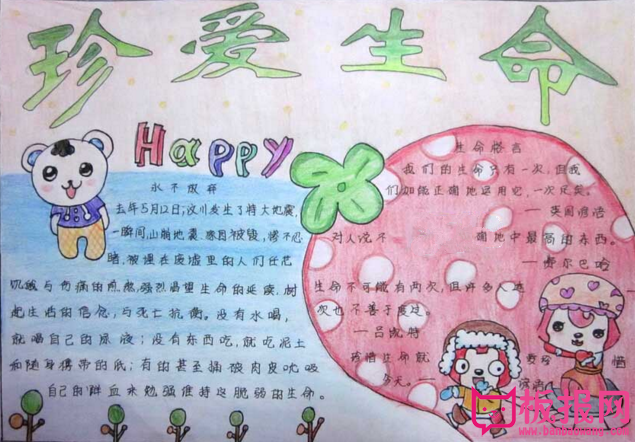 珍爱生命
Happy
永不放弃
去年5月12日,汶川发生了特大地震,
一瞬间,山崩地裂
被埋在废墟里的人们在忍
饥饿与伤病的煎熬,强烈渴望生命的延续,树
起生活的信念,与死亡抗衡。没有水喝,
就喝自己的尿液;没有东西吃,就吃泥土
和随身携带的纸;有的甚至抽破肉皮吮吸
自己的鲜血来勉强维持这脆弱的生命。
生命格言
我们的生命只有一次,但我
们如能正确地运用它,一次足矣。
—英国谚语
对人说不
确地中最
的东西。
—费尔巴哈
生命不可能有两次,但许多人连一
次也不善于度过。
—吕凯特
珍惜生命就
今天。
板报网
www.banbaowang.com